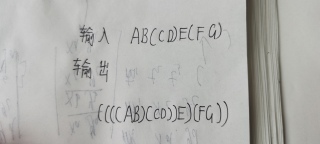 输入 AB(CD)E(FG)
输出
((((AB)(CD))E)(FG))